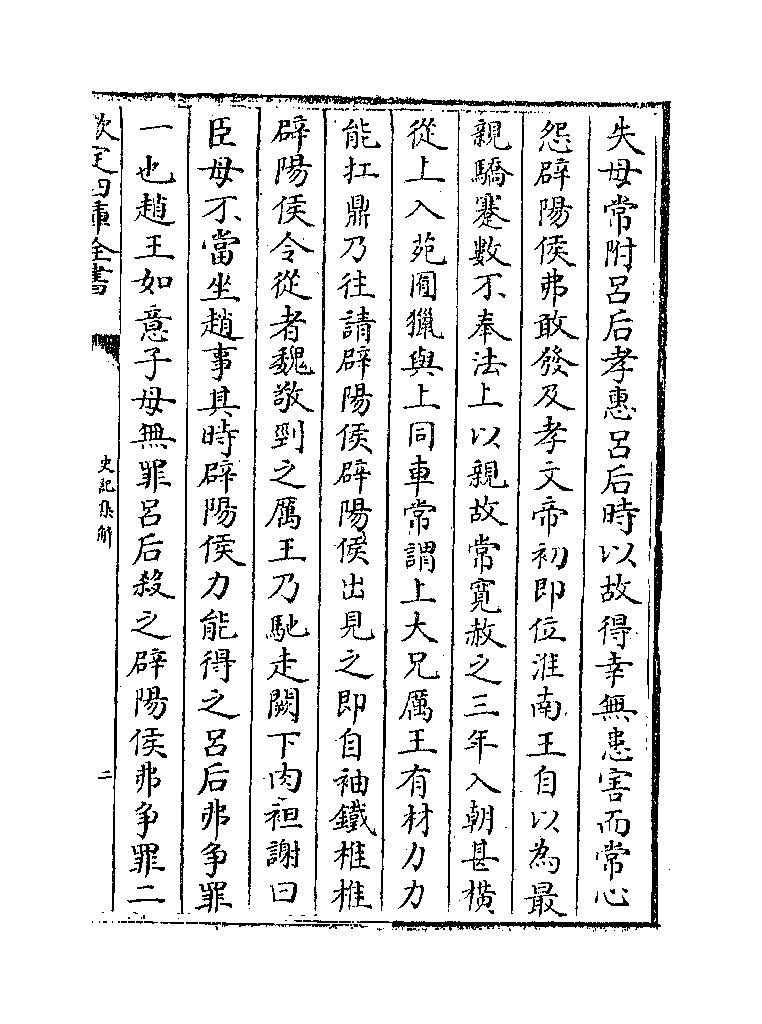 失母常附呂后孝惠呂后時以故得幸無患害而常心
怨辟陽侯弗敢發及孝文帝初即位淮南王自以為最
親驕蹇數不奉法上以親故常寛赦之三年入朝甚橫
從上入苑囿獵與上同車常謂上大兄厲王有材力力
能扛鼎乃往請辟陽侯辟陽侯出見之即自袖鐵椎椎
辟陽侯令從者魏敬剄之厲王乃馳走闕下肉袒謝曰
臣母不當坐趙事其時辟陽侯力能得之呂后弗争罪
一也趙王如意子母無罪呂后殺之辟陽侯弗争罪二
欽定四庫全書
史記集解
二